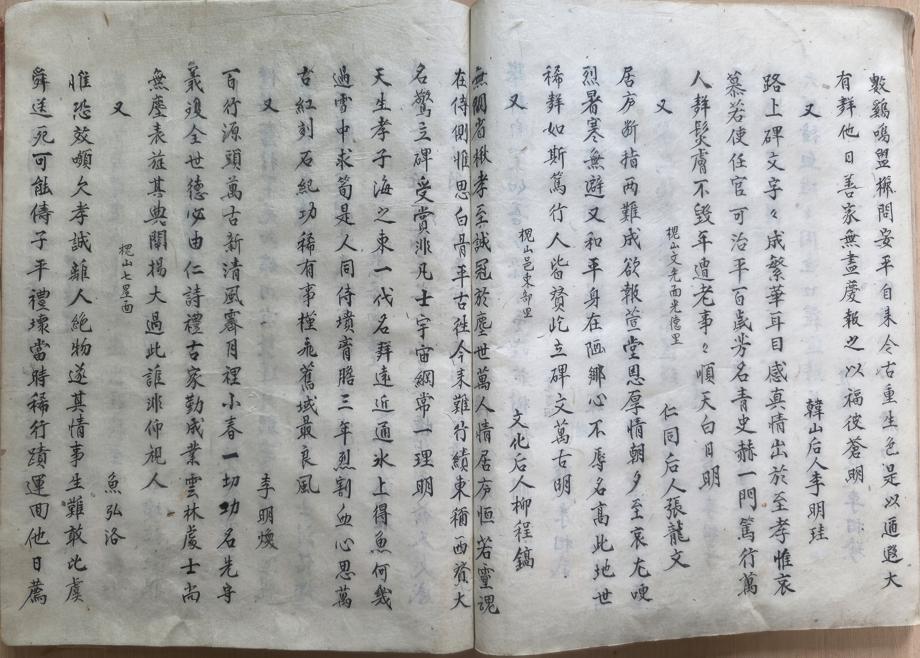 數鷄鳴盥櫛問安平自來今古重生色是以通遐大
有群他日善家無盡慶報之以福彼蒼明
又 韓山后人李明珪
路上碑文字々成繁華耳目感眞情出於至孝惟哀
慕若使任官可治平百歲芳名靑史赫一門篤行萬
人群髮膚不毁年遭老事々順天白日明
又 槐山文光面光德里 仁同后人張龍文
居廬斷指兩難成欲報萱堂恩厚情朝夕至哀尤哽
烈暑寒無避又和平身在陋鄕心不辱名高此地世
稀群如斯篤行人皆賛屹立碑文萬古明
又 槐山邑東部里 文化后人柳程鎬
無間省楸孝至誠冠於塵世萬人情居廬恒若靈魂
在侍側惟思白骨平古徃今來難行績東稱西賛大
名驚立碑受賞非凡士宇宙綱常一理明
天生孝子海之東一代名聲遠近通氷上得魚何幾
過雪中求筍是人同侍墳嘗膽三年烈割血心思萬
古紅刻石紀功稀有事槿苑舊域最良風
又 李明煥
百行源頭萬古新淸風霽月裡小春一切功名先守
義復全世德必由仁詩禮古家勤成業雲林處士尙
無塵表旌其典闡揚大過此誰非仰視人
又 槐山七星面 魚弘洛
惟恐效嚬欠孝誠離人絶物遂其情事生難敢比虞
舜送死可能儔子平禮壞當時稀行蹟運回他日薦